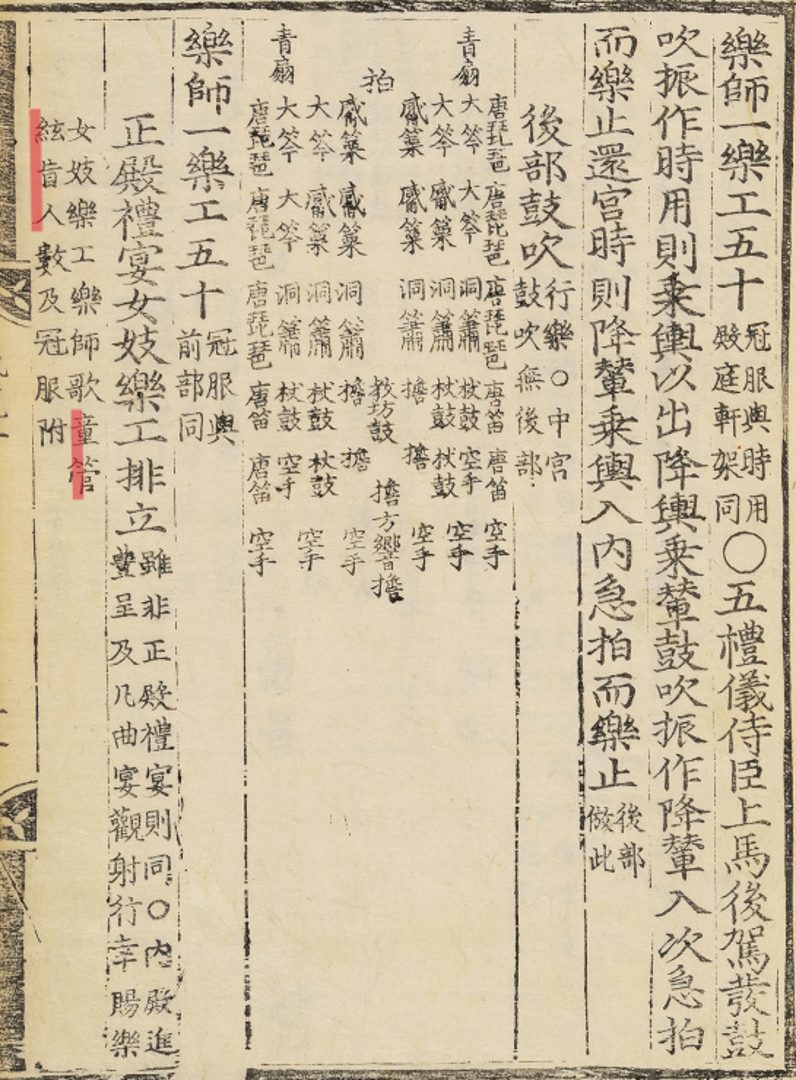 樂師一樂工五十冠服與時用殿庭軒架同〇五禮儀侍臣上馬後駕發鼓
吹振作時用則乘輿以出降輿乘輦鼓吹振作降輦入次急拍
而樂止還宮時則降輦乘輿入內急拍而樂止後部倣此
後部鼓吹行樂〇中宮鼓吹無後部
唐琵琶 唐琵琶 唐琵琶 唐笛 唐笛 空手
青扇 大笒 大笒 洞簫 杖鼓 空手 空手
大笒 觱篥 洞簫 杖鼓 杖鼓
觱篥 觱篥 洞簫 擔 擔 空手
拍 教坊鼓 擔 方響 擔
觱篥 觱篥 洞簫 擔 擔 空手
大笒 觱篥 洞簫 杖鼓 杖鼓 空手
青扇 大笒 大笒 洞簫 杖鼓 空手
唐琵琶 唐琵琶 唐琵琶 唐笛 唐笛 空手
樂師一樂工五十冠服與前部同
正殿禮宴女妓樂工排立雖非正殿禮宴則同〇內殿進豐呈及凡曲宴觀射行幸賜樂
女妓樂工樂師歌童管
絃盲人數及冠服附